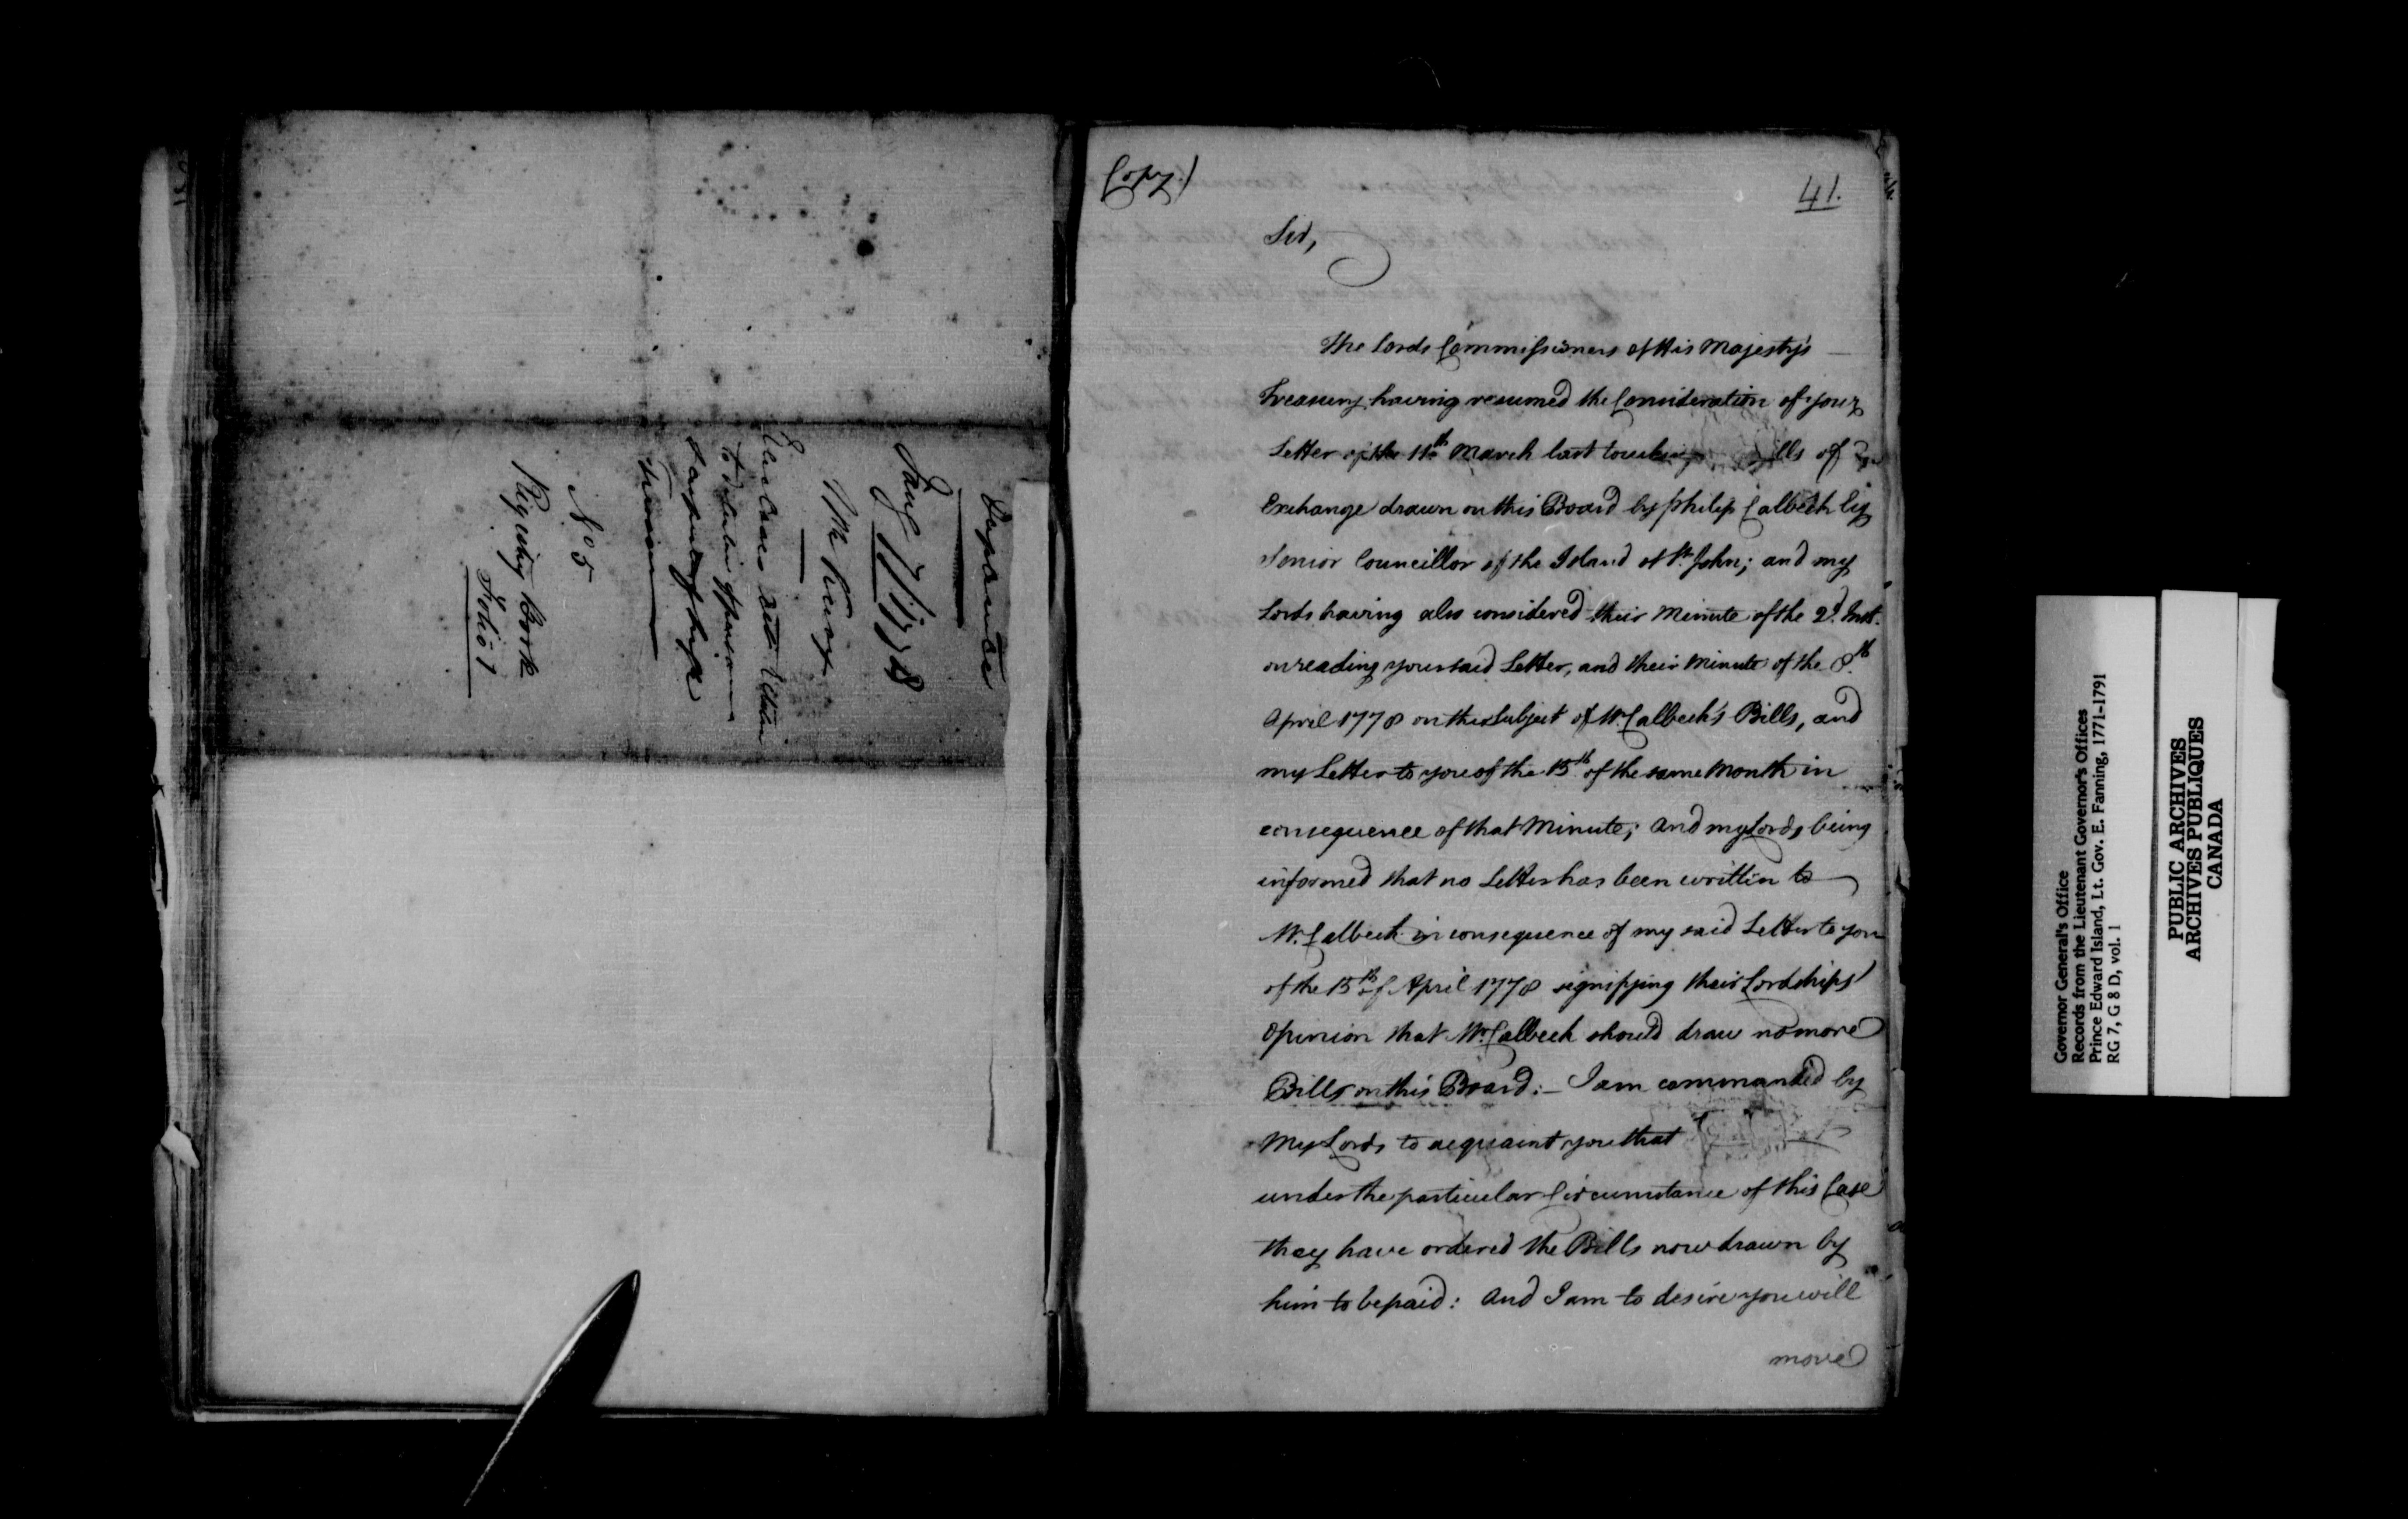 Separate
Augt 7th 1778
Mr
Enclosure
of persons
N o 5
Registry Book
Folio 1
Copy)
41.
Sir,
The Lords Commissioners of His Majesty's
Treasury having resumed the Consideration of your
Letter of the 11th March last touching ills of
Exchange drawn on this Board by Philip Callbeck Esq
Senior Councillor of the Island of St. John; and my
Lords having also considered their Minute of the 2d. Inst.
on reading your said Letter, and their Minute of the 8th
April 1778 on the Subject of Mr. Callbeck's Bills, and
my Letter to you of the 15th of the same Month in
consequence of that Minute; and my Lords being
informed that no Letter has been written to
Mr. Callbeck in consequence of my said Letter to you
of the 15th of April 1778 signifying their Lordships'
Opinion that Mr. Callbeck should draw no more
Bills on this Board:— I am commanded by
My Lords to acquaint you that
under the particular Circumstance of this Case
they have ordered the Bills now drawn by
him to be paid: And I am to desire you will
move
Governor General's Office
Records from the Lieutenant Governor's Offices
Prince Edward Island, Lt. Gov. E. Fanning, 1771-1791
RG 7, G 8 D, vol. 1
PUBLIC ARCHIVES
ARCHIVES PUBLIQUES
CANADA